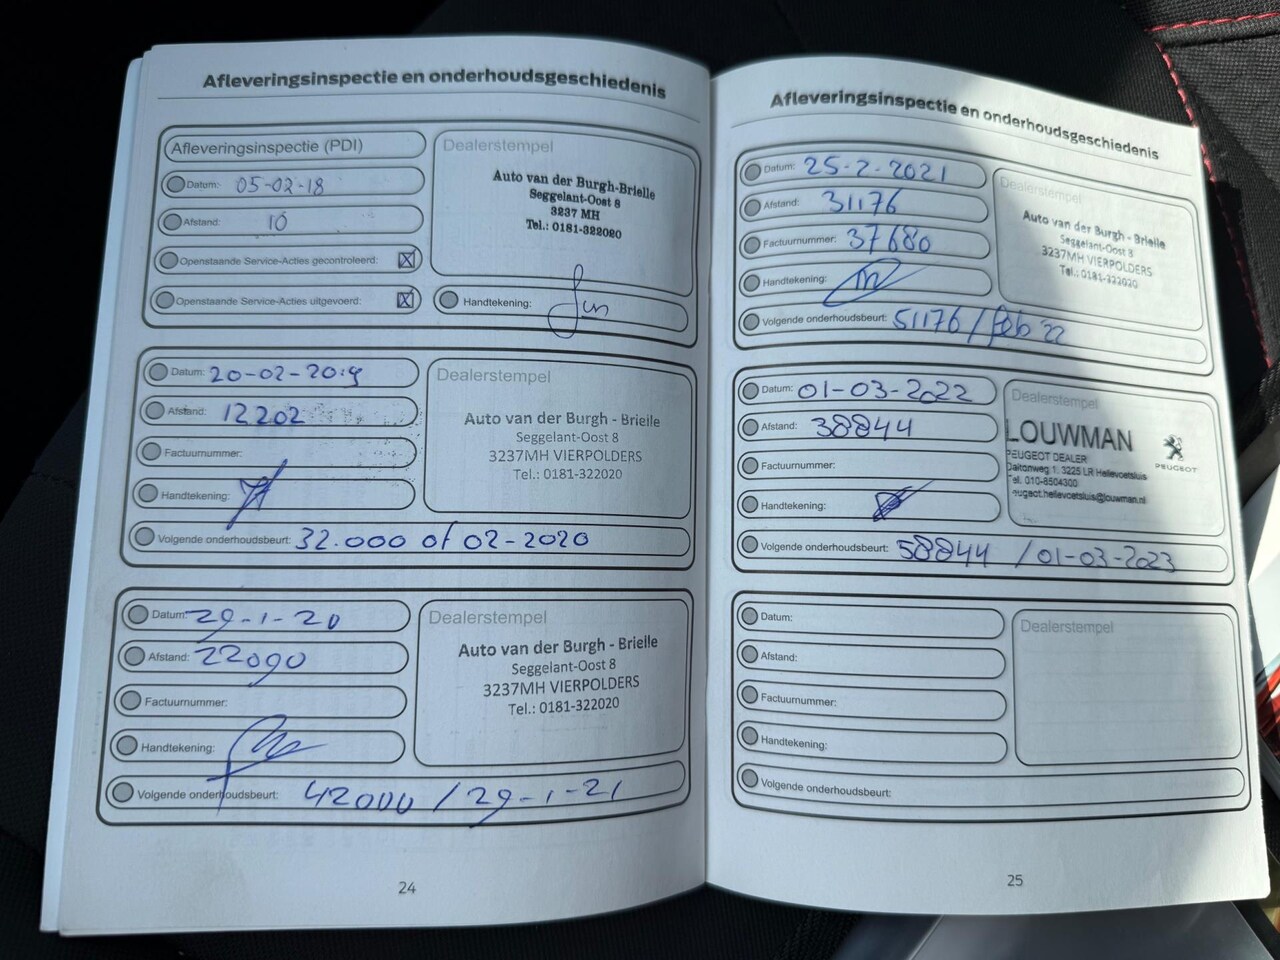 Afleveringsinspectie en onderhoudsgeschiedenis
Afleveringsinspectie (PDI)
Datum: 05-02-18
Afstand: 10
Openstaande Service-Acties gecontroleerd: X
Openstaande Service-Acties uitgevoerd: X
Dealerstempel
Auto van der Burgh-Brielle
Seggelant-Oost 8
3237 MH
Tel.: 0181-322020
Handtekening:
Datum: 20-02-2019
Afstand: 12202
Factuurnummer:
Handtekening:
Volgende onderhoudsbeurt: 32.000 of 02-2020
Dealerstempel
Auto van der Burgh - Brielle
Seggelant-Oost 8
3237MH VIERPOLDERS
Tel.: 0181-322020
Datum: 29-1-20
Afstand: 22090
Factuurnummer:
Handtekening:
Volgende onderhoudsbeurt: 42000 / 29-1-21
Dealerstempel
Auto van der Burgh - Brielle
Seggelant-Oost 8
3237MH VIERPOLDERS
Tel.: 0181-322020
24
Afleveringsinspectie en onderhoudsgeschiedenis
Datum: 25-2-2021
Afstand: 31176
Factuurnummer: 37680
Handtekening:
Volgende onderhoudsbeurt: 51176 / feb 22
Dealerstempel
Auto van der Burgh - Brielle
Seggelant-Oost 8
3237MH VIERPOLDERS
Tel.: 0181-322020
Datum: 01-03-2022
Afstand: 38844
Factuurnummer:
Handtekening:
Volgende onderhoudsbeurt: 58844 / 01-03-2023
Dealerstempel
LOUWMAN
PEUGEOT
PEUGEOT DEALER
Daltonweg 1, 3225 LR Hellevoetsluis
Tel. 010-8504300
peugeot.hellevoetsluis@louwman.nl
Datum:
Afstand:
Factuurnummer:
Handtekening:
Volgende onderhoudsbeurt:
Dealerstempel
25